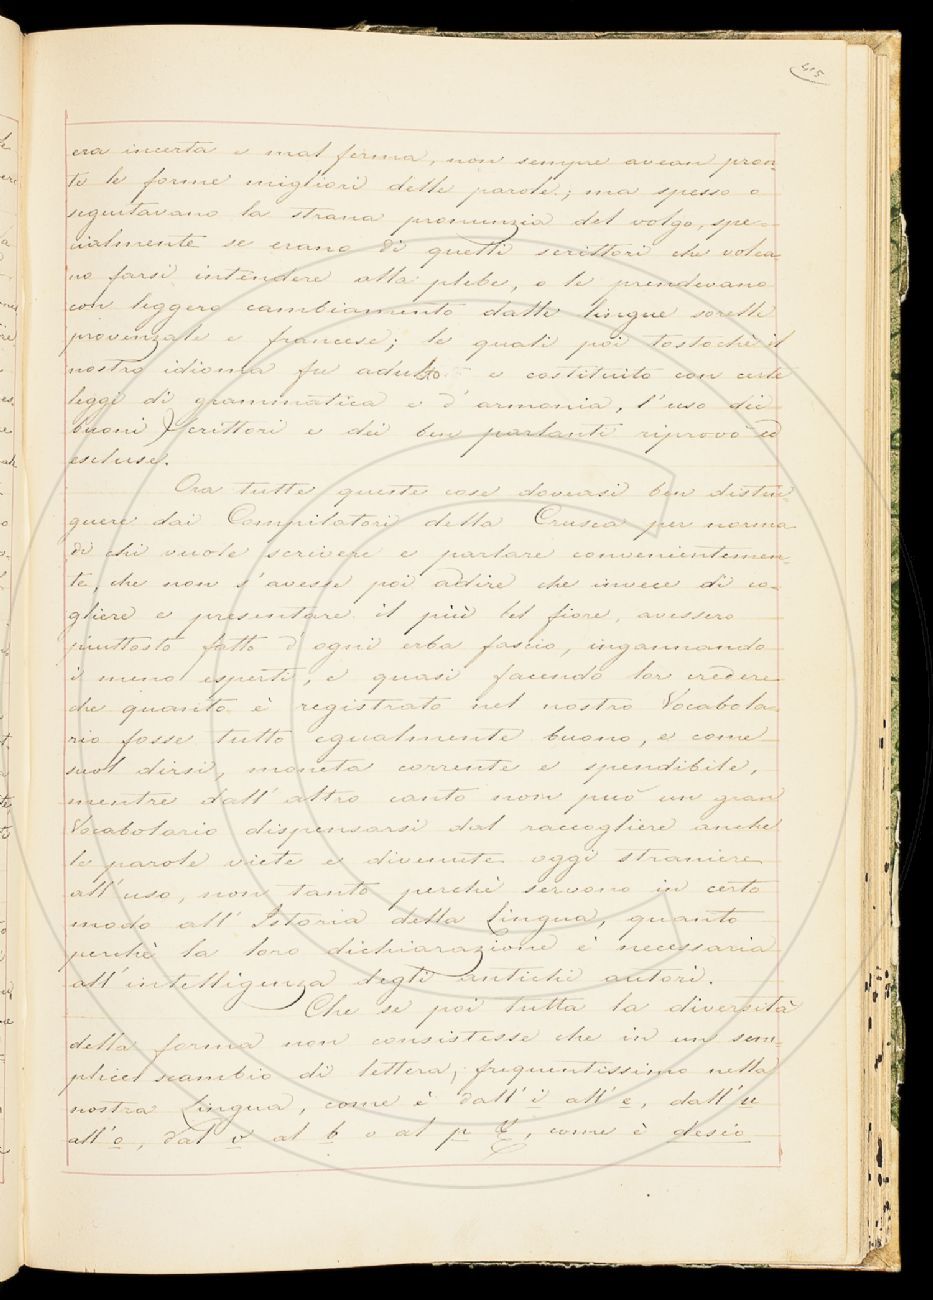 45
era incerta e mal ferma, non sempre avean pron=
te le forme migliori delle parole; ma spesso o
seguitavano la strana pronunzia del volgo, spe=
cialmente se erano di quelli scrittori che volea
no farsi intendere alla plebe, o le prendevano
con leggero cambiamento dalle lingue sorelle
provenzale e francese; le quali poi tostochè il
nostro idioma fu adulto e costituito con certe
leggi di grammatica e d'armonia, l'uso dei
buoni Scrittori e dei ben parlanti riprovò ed
escluse.
Ora tutte queste cose doveasi ben distin=
guere dai Compilatori della Crusca per norma
di chi vuole scrivere e parlare convenientemen=
te, che non s'avesse poi a dire che invece di co=
gliere e presentare il più bel fiore, avessero
piuttosto fatto d'ogni erba fascio, ingannando
i meno esperti, e quasi facendo lor credere
che quanto è registrato nel nostro Vocabola=
rio fosse tutto egualmente buono, e come
suol dirsi, moneta corrente e spendibile,
mentre dall'altro canto non può un gran
Vocabolario dispensarsi dal raccogliere anche
le parole viete e divenute oggi straniere
all'uso, non tanto perchè servono in certo
modo all'Istoria della Lingua, quanto
perchè la loro dichiarazione è necessaria
all'intelligenza degli antichi autori.
Che se poi tutta la diversità
della forma non consistesse che in un sem=
plice scambio di lettera, frequentissimo nella
nostra Lingua, come è dall'i all'e, dall'u
all'o, dal v al b o al p &, come è desio